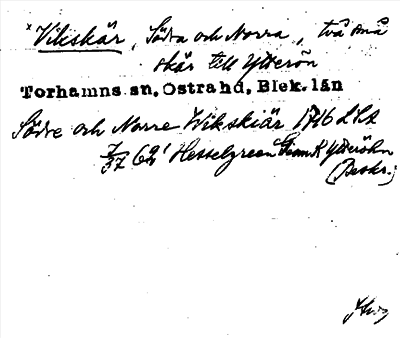 × Vikskär, Södra och Norra, två små
skär till Ytterön
Torhamns sn, Östra hd, Blek. län
Södre och Norre Wikskiär 1746 LSA
62¹ Hesselgreen Ytteröhn
(Beskr.)